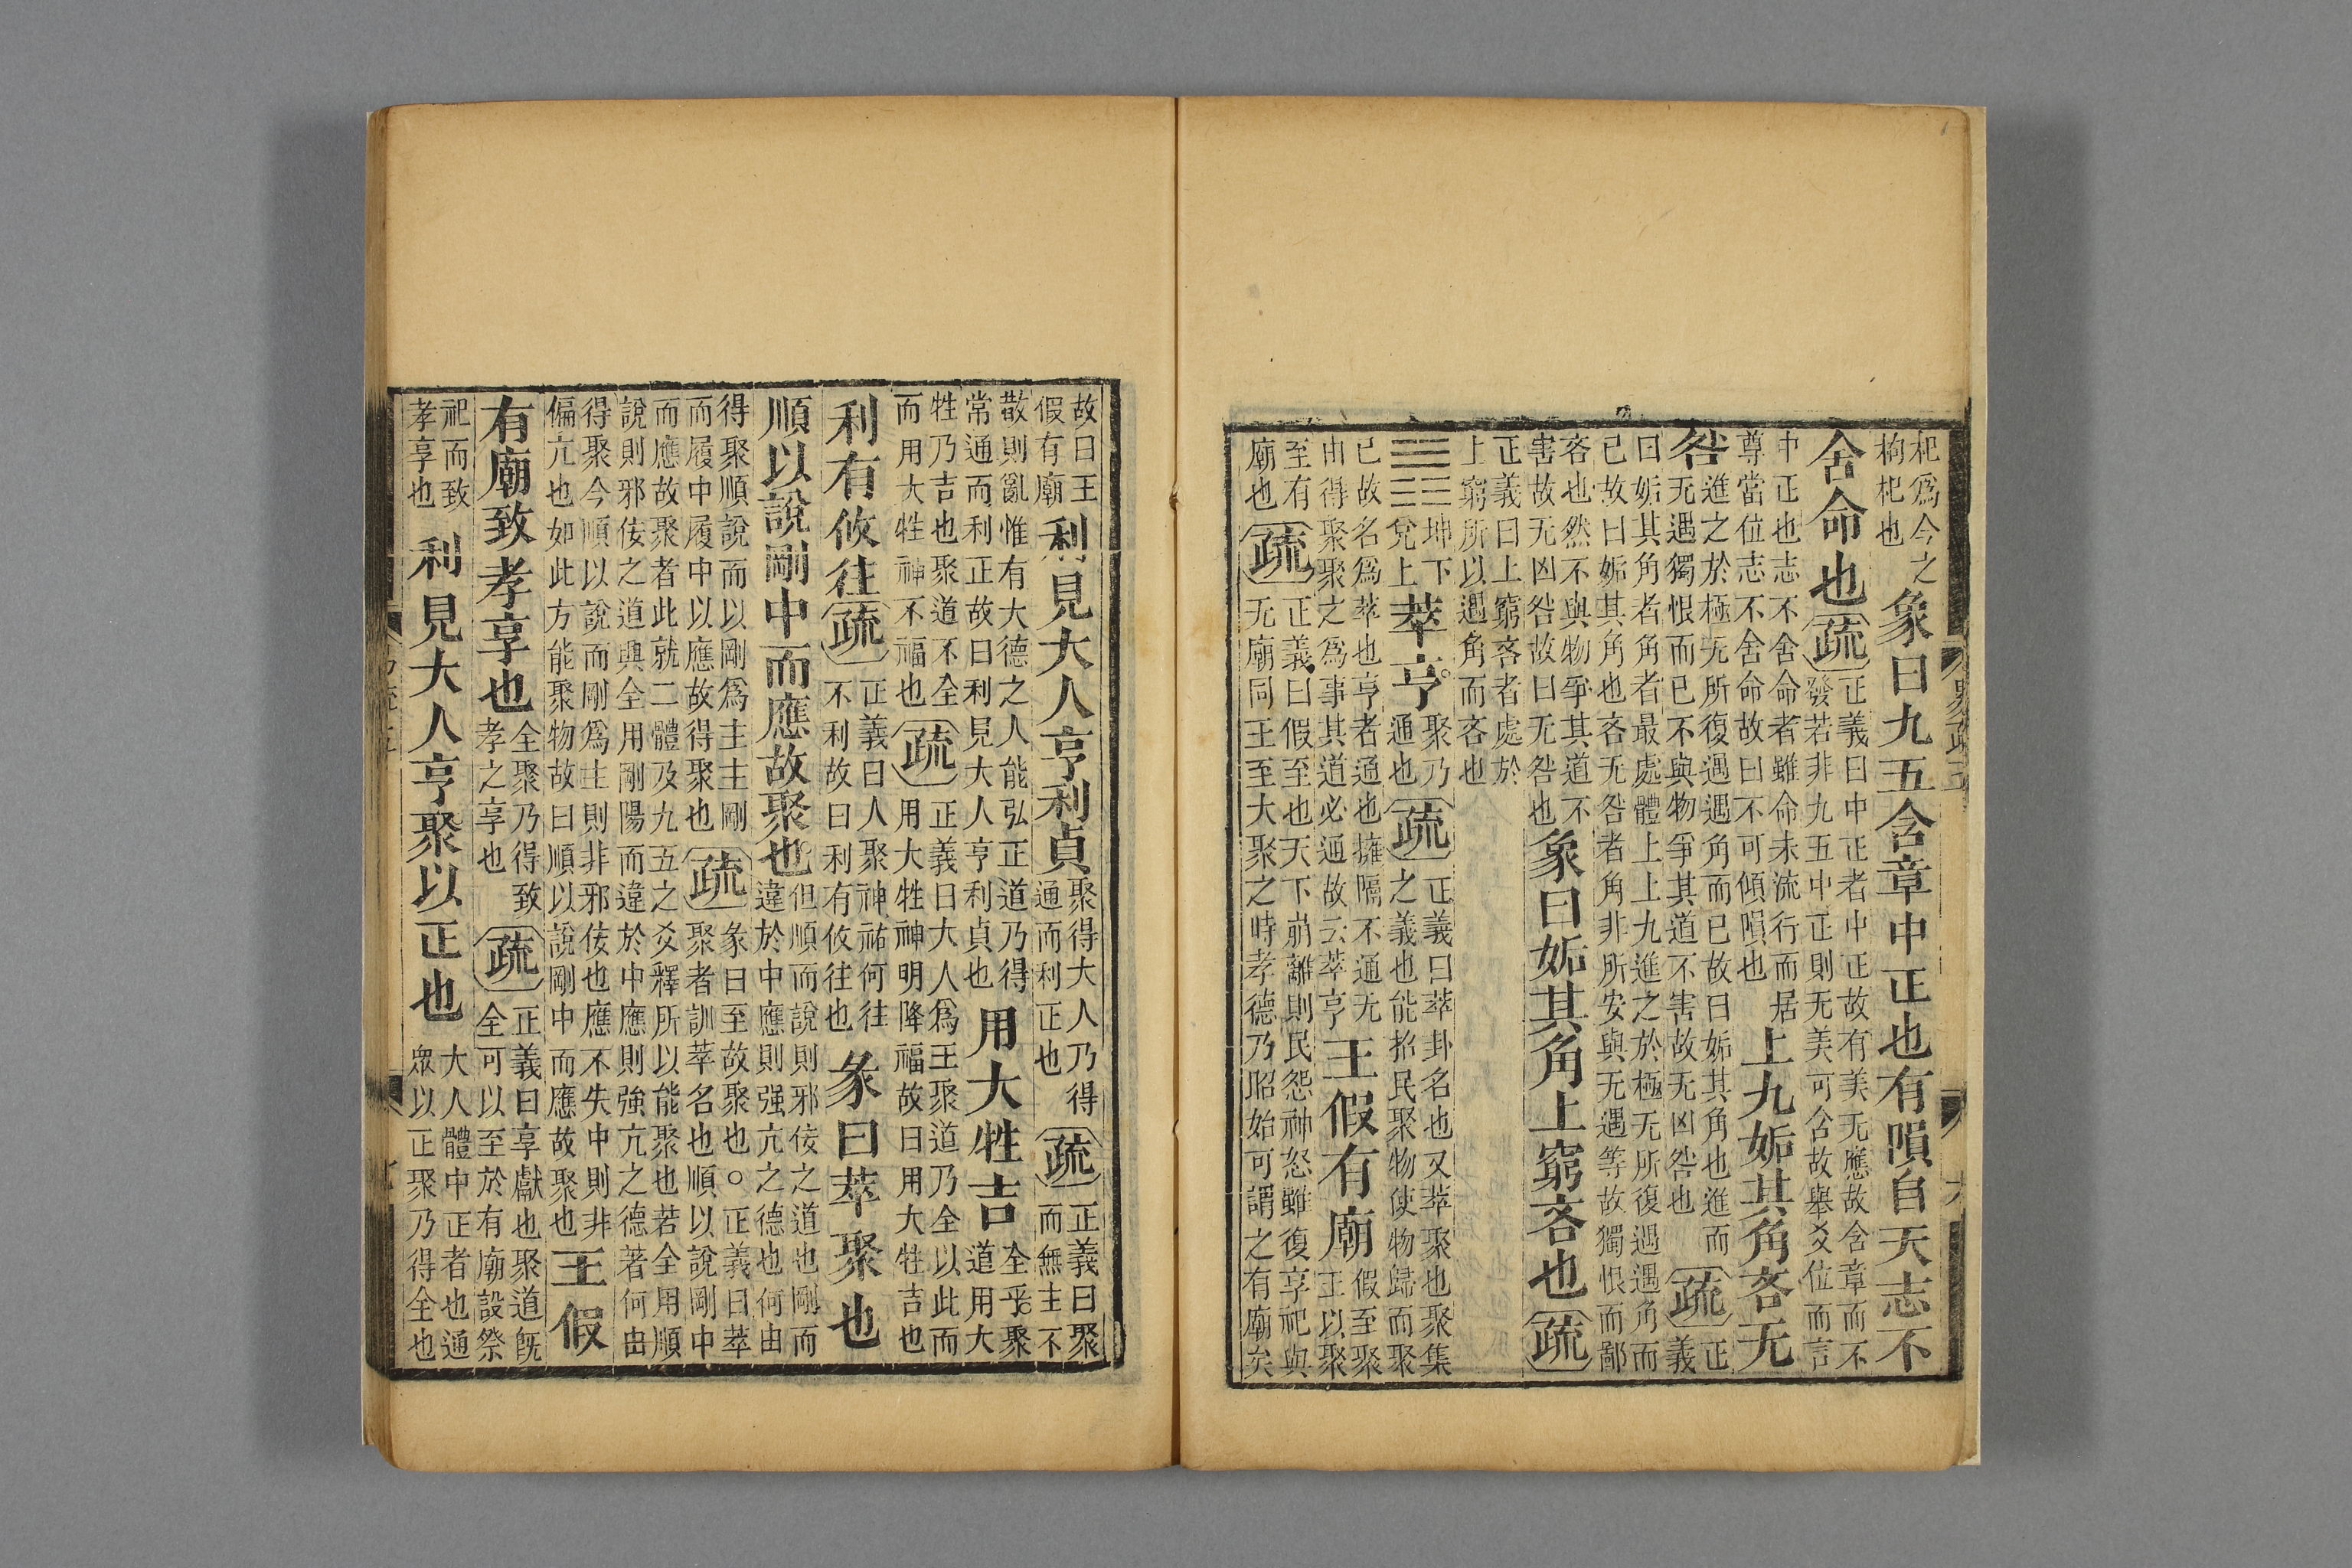 杞爲今之枸杞也象曰九五含章中正也有隕自天志不
舍命也疏正義曰中正者中正故有美无應故含章而不發若非九五中正則无美可含故舉爻位而言
中正也志不舍命者雖命未流行而居尊當位志不舍命故曰不可傾隕也上九姤其角吝无
咎進之於極无所復遇遇角而已故曰姤其角也進而无遇獨恨而已不與物爭其道不害故无凶咎也疏正義
曰姤其角者角者最處體上上九進之於極无所復遇遇角而已故曰姤其角也吝无咎者角非所安與无遇等故獨恨而鄙
吝也然不與物爭其道不害故无凶咎故曰无咎也象曰姤其角上窮吝也疏
正義曰上窮吝者處於上窮所以遇角而吝也
䷬坤下兌上萃亨聚乃通也疏正義曰萃卦名也又萃聚也聚集之義也能招民聚物使物歸而聚
已故名爲萃也亨者通也擁隔不通无由得聚聚之爲事其道必通故云萃亨王假有廟假至聚王以聚
至有廟也疏正義曰假至也天下崩離則民怨神怒雖復享祀與无廟同王至大聚之時孝德乃昭始可謂之有廟矣
故曰王假有廟利見大人亨利貞聚得大人乃得通而利正也疏正義曰聚而無主不
散則亂惟有大德之人能弘正道乃得常通而利正故曰利見大人亨利貞也用大牲吉全乎聚道用大
牲乃吉也聚道不全而用大牲神不福也疏正義曰大人爲王聚道乃全以此而用大牲神明降福故曰用大牲吉也
利有攸往疏正義曰人聚神祐何往不利故曰利有攸往也彖曰萃聚也
順以說剛中而應故聚也但順而說則邪佞之道也剛而違於中應則强亢之德也何由
得聚順說而以剛爲主主剛而履中履中以應故得聚也疏彖曰至故聚也○正義曰萃聚者訓萃名也順以說剛中
而應故聚者此就二體及九五之爻釋所以能聚也若全用順說則邪佞之道興全用剛陽而違於中應則強亢之德著何由
得聚今順以說而剛爲主則非邪佞也應不失中則非偏亢也如此方能聚物故曰順以說剛中而應故聚也王假
有廟致孝享也全聚乃得致孝之享也疏正義曰享獻也聚道旣全可以至於有廟設祭
祀而致孝享也利見大人亨聚以正也大人體中正者也通衆以正聚乃得全也